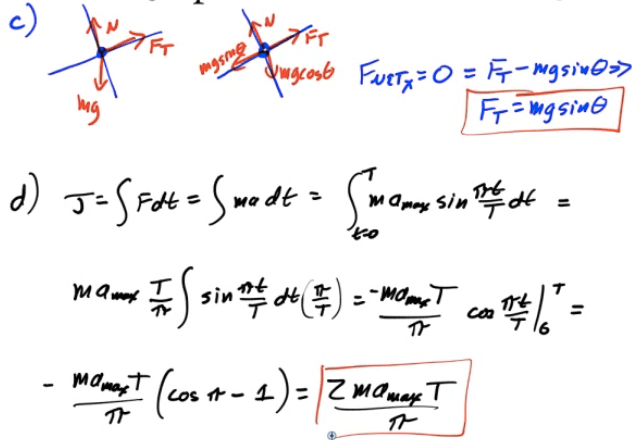 c) N F_T mg N F_T mgsinθ mgcosθ
F_NET_x = 0 = F_T - mgsinθ ⇒
F_T = mgsinθ
d) J = ∫Fdt = ∫ma dt = ∫_{t=0}^{T} m a_max sin πt/T dt =
m a_max T/π ∫ sin πt/T dt (π/T) = -m a_max T/π cos πt/T |_0^T =
- m a_max T/π (cos π - 1) = 2 m a_max T/π